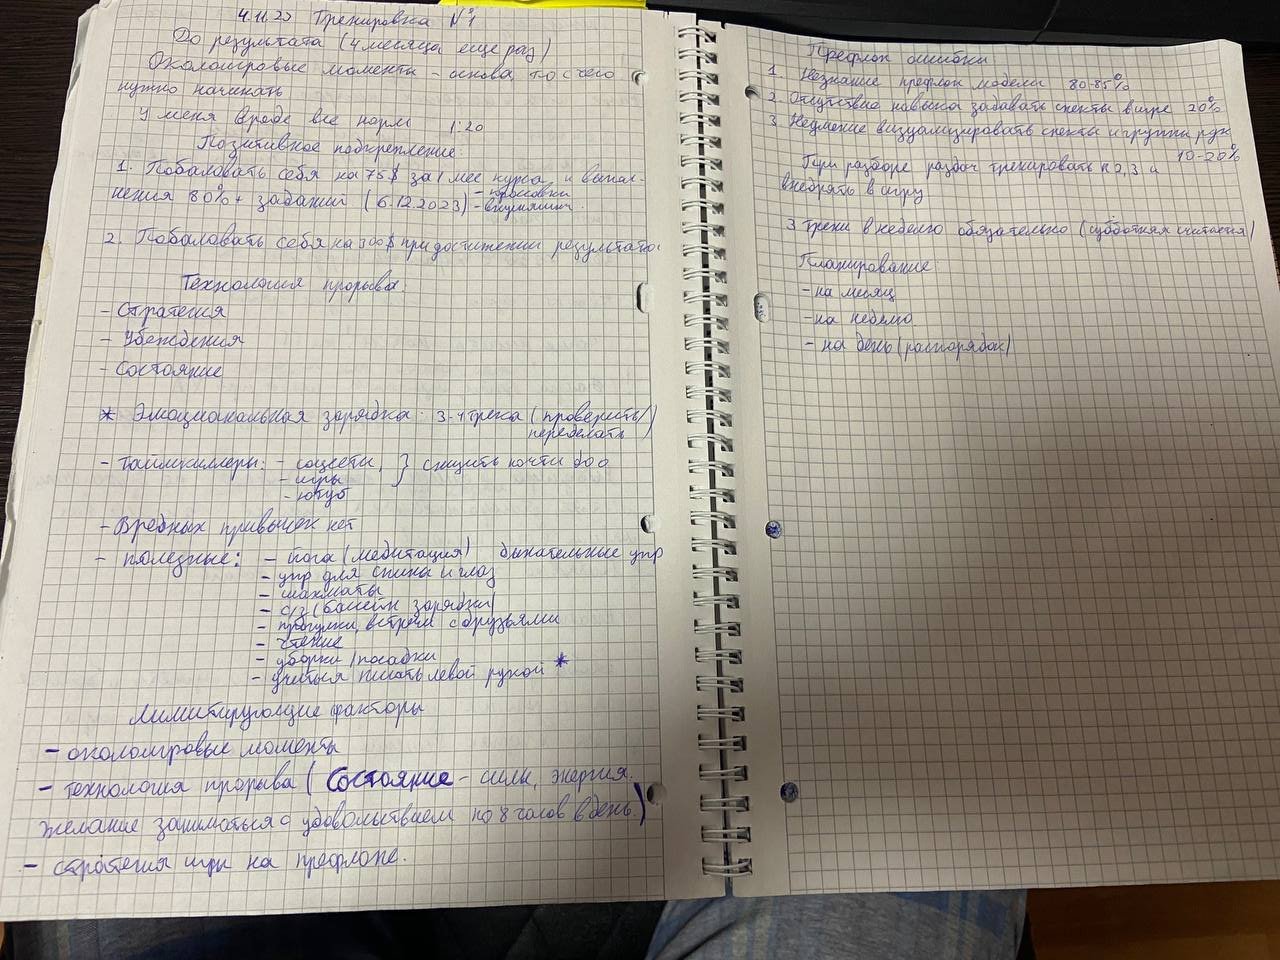 4.11.23 Тренировка №1
До результата (4 месяца еще раз)
Околоигровые моменты - основа то с чего
нужно начинать
У меня вроде все норм 1:20
Позитивное подкрепление:
1. Побаловать себя на 75$ за 1 мес курса и выпол-
нения 80%+ заданий (6.12.2023) - кроссовки
2. Побаловать себя на 300$ при достижении результата
Технология прорыва:
- Стратегия
- Убеждения
- Состояние
* Эмоциональная зарядка: 3-4 трека (проверить/
переделать)
- Таймкиллеры: - соцсети,
- игры
- ютуб
} снизить почти до 0
- Вредных привычек нет
- полезные: - йога (медитация) дыхательные упр
- упр для спины и глаз
- шахматы
- с/з (бассейн зарядки)
- прогулки, встречи с друзьями
- чтение
- уборки / посадки
- учиться писать левой рукой *
Лимитирующие факторы
- околоигровые моменты
- технология прорыва (состояние - силы, энергия.
желание заниматься с удовольствием по 8 часов в день.)
- стратегия игры на префлопе.
Префлоп ошибки
1 Незнание префлоп модели 80-85%
2. Отсутствие навыка задавать спекты в игре 20%
3 Неумение визуализировать спекты и группы рук
10-20%
При разборе раздач тренировать п 2, 3 и
внедрять в игру
3 треки в неделю обязательно (субботняя считается)
Планирование:
- на месяц
- на неделю
- на день (распорядок)